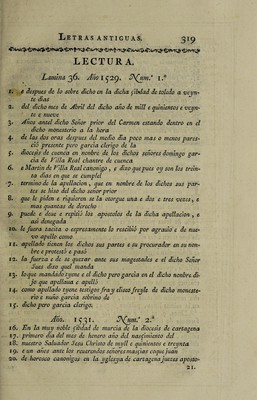 LETRAS ANTIGUAS. 319
LECTURA.
Lamina 36. Año 1529. Num.º 1.º
1. e despues de lo sobre dicho en la dicha çibdad de toledo a veyn-
te dias
2. del dicho mes de Abril del dicho año de mill e quinientos e veyn-
te e nueve
3. Años antel dicho Señor prior del Carmen estando dentro en el
dicho monesterio a la hora
4. de las dos oras despues del medio dia poco mas o menos pares-
ció presente pero garcia clerigo de la
5. diocesis de cuenca en nombre de los dichos señores domingo gar-
cia de Villa Real chantre de cuenca
6. e Martin de Villa Real canonigo, e dixo que pues oy son los trein-
ta dias en que se cumplel
7. termino de la apellacion, que en nombre de los dichos sus par-
tes se hizo del dicho señor prior
8. que le piden e riquieren se la otorgue una e dos e tres veces, e
mas quantas de derecho
9. puede e deve e repitió los apostolos de la dicha apellacion, e
asi denegada
10. le fuera tacita o espresamente lo rescibió por agravio e de nue-
vo apello como
11. apellado tienen los dichos sus partes e su procurador en su nom-
bre e protestó e pasó
12. la fuerza e de se quexar ante sus magestades e el dicho Señor
Juez dixo quel manda
13. lo que mandado tyene el dicho pero garcia en el dicho nonbre di-
jo que apellava e apelló
14. como apellado tyene testigos fray eliseo freyle de dicho moneste-
rio e nuño garcia sobrino de
15. dicho pero garcia clerigo.
Año. 1531. Num.º 2.º
16. En la muy noble çibdad de murcia de la diocesis de cartagena
17. primero dia del mes de henero año del nasçimiento del
18. nuestro Salvador Jesu Christo de myll e quinientos e treynta
19. e un años ante los reverendos señores maçias coque juan
20. de horosco canonigos en la yglesya de cartagena juezes aposto-
21.